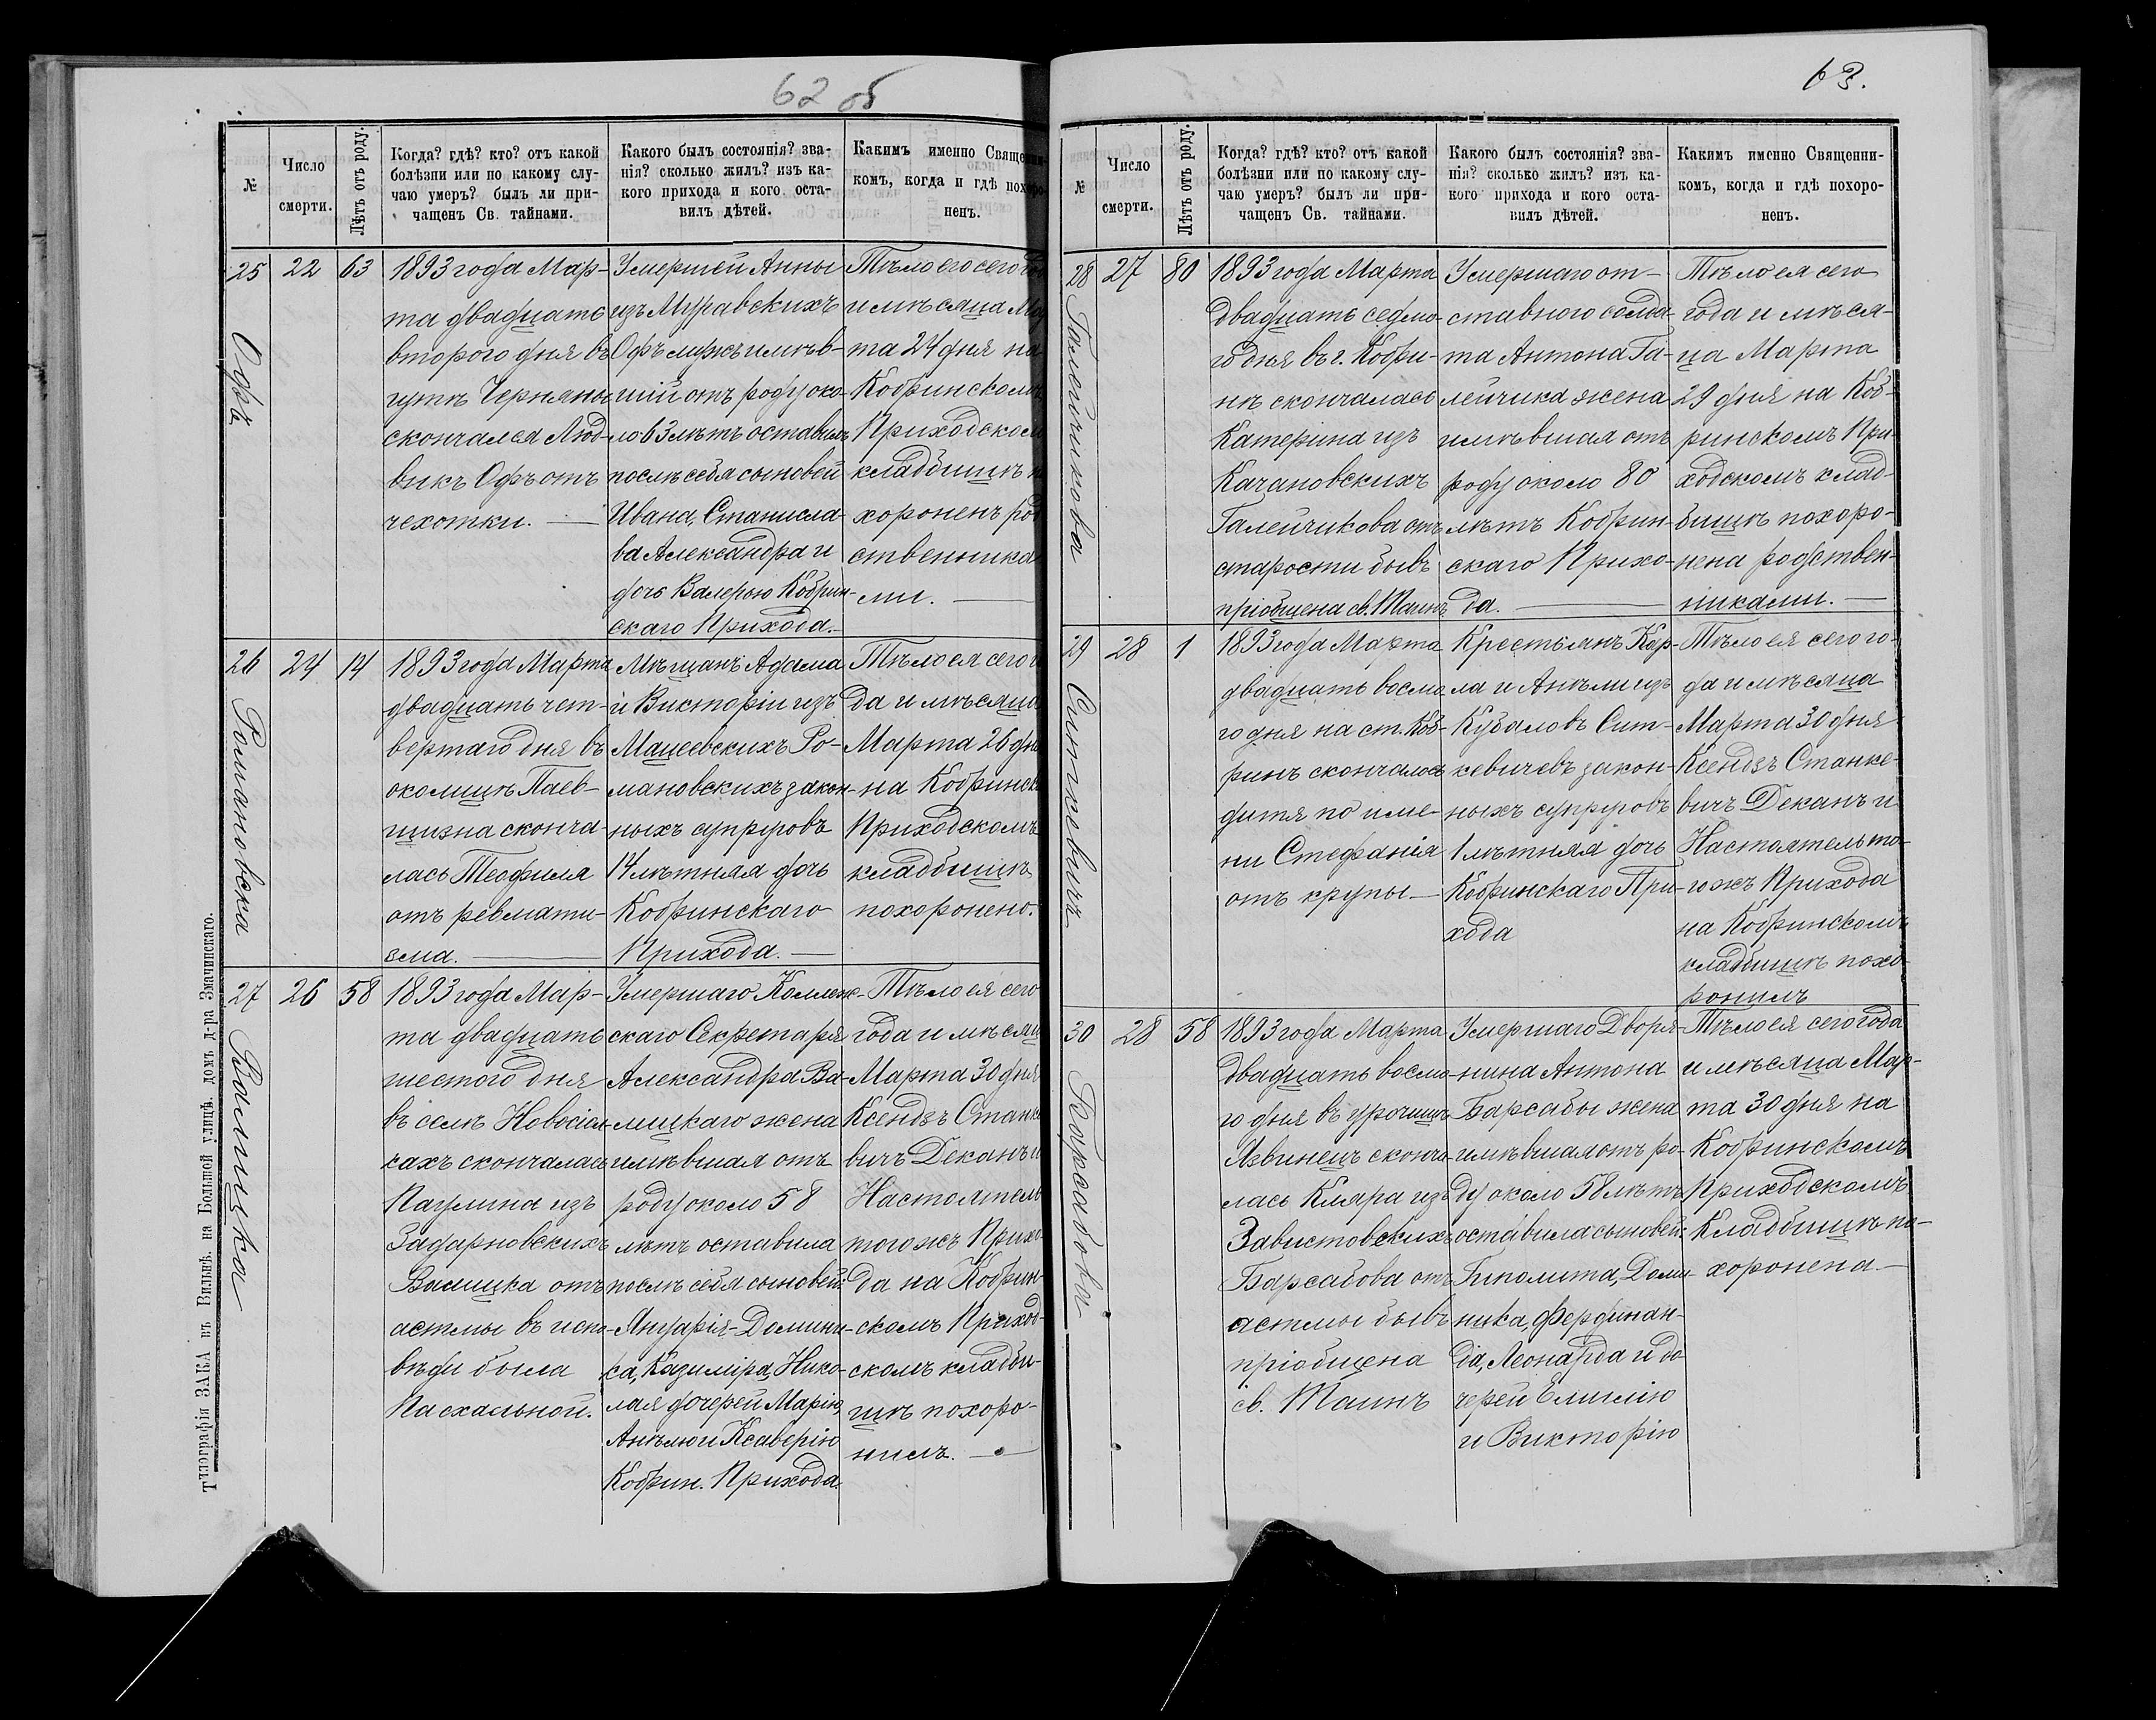 62 об
№
Число
смерти.
Лѣтъ отъ роду.
Когда? гдѣ? кто? отъ какой
болѣзни или по какому слу-
чаю умеръ? былъ ли при-
чащенъ Св. тайнами.
Какого былъ состоянія? зва-
нія? сколько жилъ? изъ ка-
кого прихода и кого оста-
вилъ дѣтей.
Какимъ именно Священни-
комъ, когда и гдѣ похоро-
ненъ.
25
Офъ
22
63
1893 года Мар-
та двадцать
второго дня въ
Черняны
скончался Люд-
викъ Офъ отъ
чехотки.
Умершей Анны
изъ Муравскихъ
Офъ мужъ имѣв-
шій отъ роду око-
ло 63 лѣтъ оставилъ
послѣ себя сыновей
Ивана, Станисла-
ва Александра и
дочь Валерью Кобрин-
скаго Прихода.
Тѣло его сего
и мѣсяца
та 24 дня на
Кобринскомъ
Приходском
кладбищѣ
хороненъ род
ственника
ми.
26
Романовска
24
14
1893 года Марта
двадцать чет-
вертаго дня въ
околицѣ Паев-
щизна сконча-
лась Теофиля
отъ ревмати-
зма.
Мѣщанъ Адама
и Викторіи изъ
Мацеевскихъ Ро-
мановскихъ закон-
ныхъ супруговъ
14 лѣтняя дочь
Кобринскаго
Прихода.
Тѣло ея сего
да и мѣсяца
Марта 26 дня
на Кобринск
Приходскомъ
кладбищѣ
похоронено.
27
Валицка
26
58
1893 года Мар-
та двадцать
шестого дня
въ селѣ Новосіол-
кахъ скончалась
Паулина изъ
Задарновскихъ
Валицка отъ
астмы въ испо-
вѣди была
Пасхальной.
Умершаго Коллеж-
скаго Секретаря
Александра Ва-
лицкаго жена
имѣвшая отъ
роду около 58
лѣтъ оставила
послѣ себя сыновей:
Януарія-Домини-
ка, Казиміра, Нико-
лая дочерей Марію,
Анѣлю и Ксаверію
Кобрин. Прихода.
Тѣло ея сего
года и мѣсяц
Марта 30 дня
Ксендзъ Станке
вичъ Деканъ и
Настоятель
того жъ Прихо-
да на Кобрин-
скомъ Приход-
скомъ кладби-
щѣ похоро-
нилъ.
Типографія ЗАКА въ Вильнѣ. на Большой улицѣ. домъ д-ра Змачинскаго.
63.
№
Число
смерти.
Лѣтъ отъ роду.
Когда? гдѣ? кто? отъ какой
болѣзни или по какому слу-
чаю умеръ? былъ ли при-
чащенъ Св. тайнами.
Какого былъ состоянія? зва-
нія? сколько жилъ? изъ ка-
кого прихода и кого оста-
вилъ дѣтей.
Какимъ именно Священни-
комъ, когда и гдѣ похоро-
ненъ.
28
Галейчикова
27
80
1893 года Марта
двадцать седмо-
го дня въ г. Кобри-
нѣ скончалась
Катерина изъ
Качановскихъ
Галейчикова отъ
старости бывъ
пріобщена св. Таинъ
Умершаго от-
ставного солда-
та Антона Га-
лейчика жена
имѣвшая отъ
роду около 80
лѣтъ Кобрин-
скаго Прихо-
да.
Тѣло ея сего
года и мѣся-
ца Марта
29 дня на Коб-
ринскомъ При-
ходскомъ клад-
бищѣ похоро-
нена родствен-
никами.
29
Синкевичъ
28
1
1893 года Марта
двадцать восмо-
го дня на ст. Коб-
ринъ скончалось
дитя по име-
ни Стефанія
отъ крупы
Крестьянъ Кар-
ла и Анѣли изъ
Кубаловъ Син-
кевичевъ закон-
ныхъ супруговъ
1 лѣтняя дочь
Кобринскаго При-
хода
Тѣло ея сего го-
да и мѣсяца
Марта 30 дня
Ксендзъ Станке-
вичъ Деканъ и
Настоятель то-
го жъ Прихода
на Кобринскомъ
кладбищѣ похо-
ронилъ
30
Барсабова
28
58
1893 года Марта
двадцать восмо-
го дня въ урочищѣ
Язвинецъ сконча-
лась Кляра изъ
Завистовскихъ
Барсабова отъ
астмы бывъ
пріобщена
св. Таинъ
Умершаго Дворя-
нина Антона
Барсабы жена
имѣвшая отъ ро-
ду около 58 лѣтъ
оставила сыновей:
Гиполита, Доми-
ника, Фердинан-
да, Леонарда и до
черей Емилію
и Викторію
Тѣло ея сего года
и мѣсяца Мар-
та 30 дня на
Кобринскомъ
Приходскомъ
Кладбищѣ по-
хоронена.